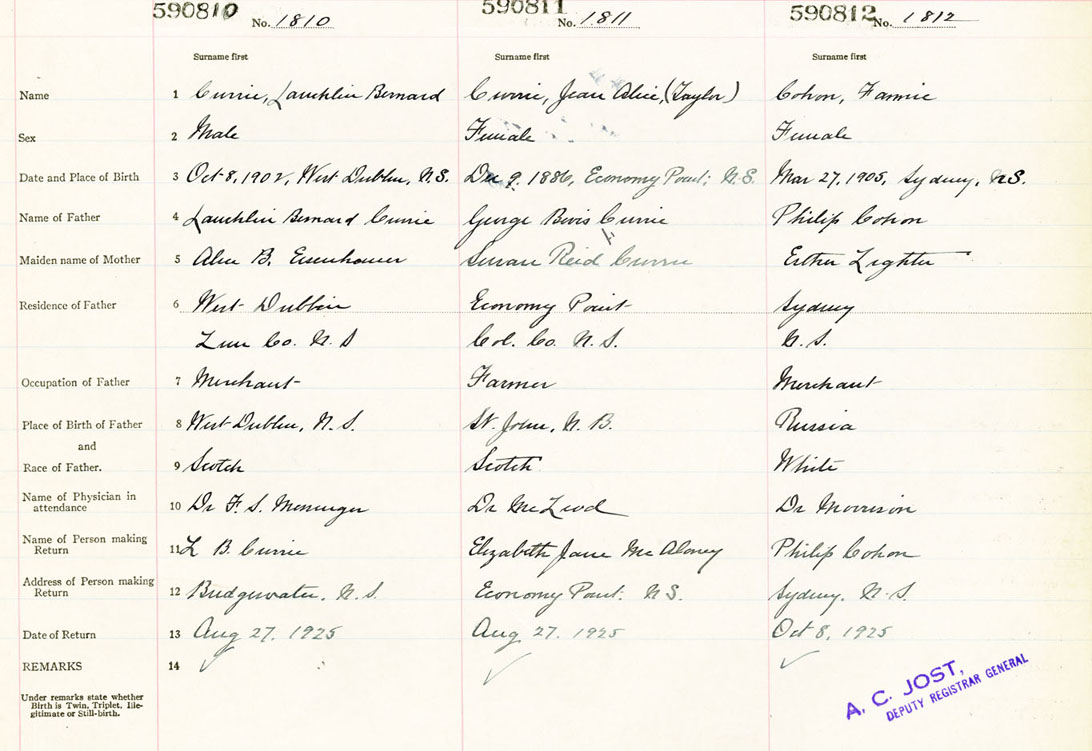 590810 No. 1810 590811 No. 1811 590812 No. 1812
Surname first Surname first Surname first
Name 1 Currie, Lauchlin Bernard Currie, Jean Alice, (Taylor) Cohon, Fannie
Sex 2 Male Female Female
Date and Place of Birth 3 Oct 8, 1902, West Dublin, N.S. Dec 9, 1886, Economy Point, N.S. Mar 27, 1905, Sydney, N.S.
Name of Father 4 Lauchlin Bernard Currie George Currie Philip Cohon
Maiden name of Mother 5 Alice B. Eisenhauer Susan Reid Currie Esther Lighter
Residence of Father 6 West Dublin Economy Point Sydney
Lun Co. N.S Col. Co. N.S. N.S.
Occupation of Father 7 Merchant Farmer Merchant
Place of Birth of Father 8 West Dublin, N.S. St. John, N.B. Russia
and
Race of Father. 9 Scotch Scotch White
Name of Physician in
attendance 10 Dr F. S. Messenger Dr McLeod Dr Morrison
Name of Person making
Return 11 L B. Currie Elizabeth Jane McAloney Philip Cohon
Address of Person making
Return 12 Bridgewater, N.S. Economy Point. N.S. Sydney. N.S.
Date of Return 13 Aug 27. 1925 Aug 27. 1925 Oct 8, 1925
REMARKS 14 ✓ ✓ ✓
Under remarks state whether
Birth is Twin, Triplet, Ille-
gitimate or Still-birth.
A. C. JOST,
DEPUTY REGISTRAR GENERAL